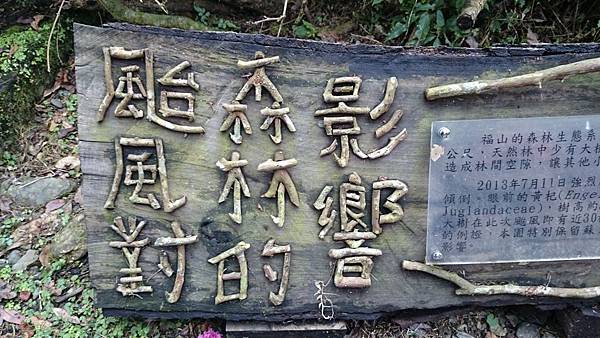 颱風對
森林的
影響
福山的森林生態系
公尺，天然林中少有大
造成林間空隙，讓其他小
2013年7月11日強烈
傾倒。眼前的黃杞(Enge
Juglandaceae)，樹高約
大樹在此次颱風即有近30
的例證，本園特別保留蘇
影響。